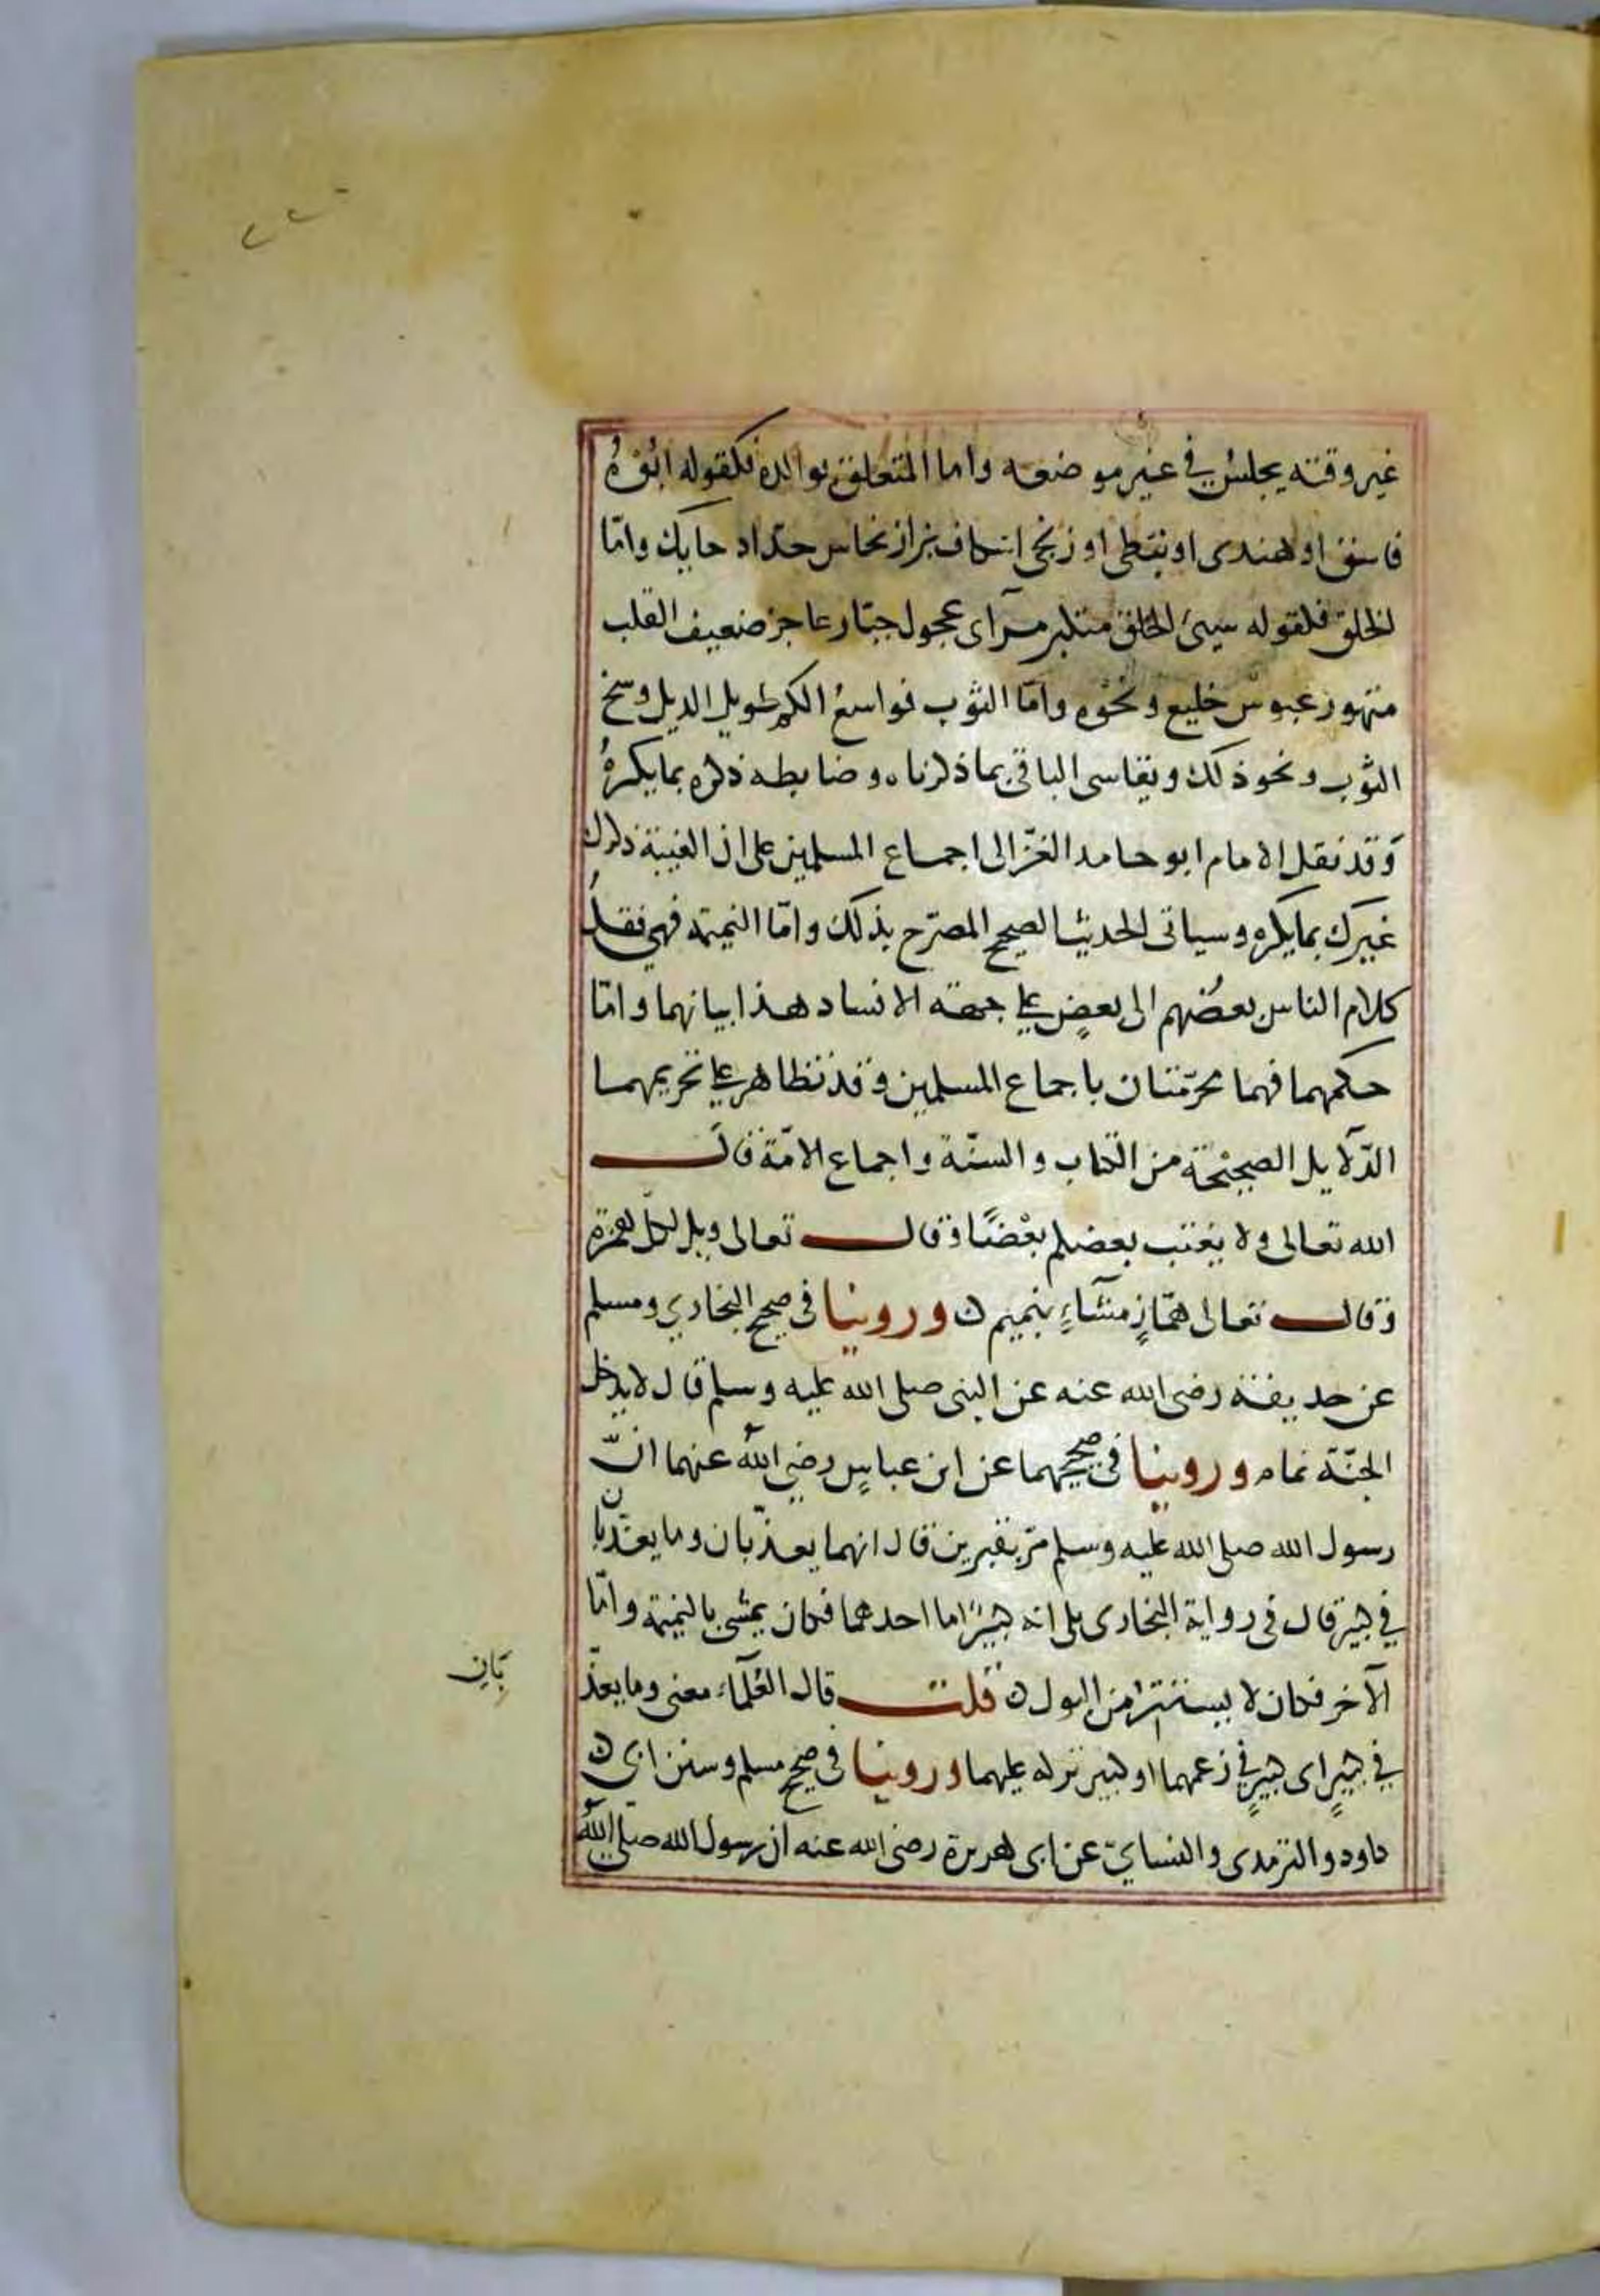 ٢٢٠
غير وقته يجلس في غير موضعه واما المتعلق بوالده فكقوله ابوه
فاسق او هندى او نبطى او زنجى اسكاف بزاز نخاس حدّاد حايك وامّا
الخلق فلقوله سيئ الخلق متكبر مرآى عجول جبّار عاجز ضعيف القلب
متهور عبوس خليع ونحوه وامّا الثوب فواسع الكم طويل الذيل وسخ
الثوب ونحو ذلك ويقاس الباقى بما ذكرناه وضابطه ذكره بما يكرهُ
وقد نقل الامام ابو حامد الغزّالى اجماع المسلمين على ان الغيبة ذكرك
غيرك بما يكره وسياتى الحديث الصحيح المصرّح بذلك وامّا النميمة فهي نقلُ
كلام الناس بعضُهم الى بعضٍ على جهة الافساد هذا بيانهما وامّا
حكمهما فهما محرّمتان باجماع المسلمين وقد تظاهر على تحريمهما
الدّلايل الصحيحة من الكتاب والسنّة واجماع الامّة قال
الله تعالى ولا يغتب بعضكم بعضًا وقال تعالى ويل لكل همزة
وقال تعالى همّازٍ مشّاءٍ بنميم ن وروينا فى صحيح البخاري ومسلم
عن حذيفة رضى الله عنه عن النبى صلى الله عليه وسلم قال لا يدخل
الجنّة نمام وروينا فى صحيحيهما عن ابن عباسٍ رضي الله عنهما انّ
رسول الله صلى الله عليه وسلم مرّ بقبرين قال انهما يعذّبان وما يعذّبان
في كبير قال فى رواية البخارى بلى انه كبيرٌ اما احدهما فكان يمشى بالنميمة وامّا
الآخر فكان لا يستتر من البول ن قلت قال العُلَمآء معنى وما يعذّ
بَانِ
في كبيرٍ اى كبيرٍ في زعمهما او كبير تركه عليهما وروينا فى صحيح مسلم وسنن ابى ن
داود والترمذى والنسايىّ عن ابى هريرة رضى الله عنه ان رسول الله صلى الله